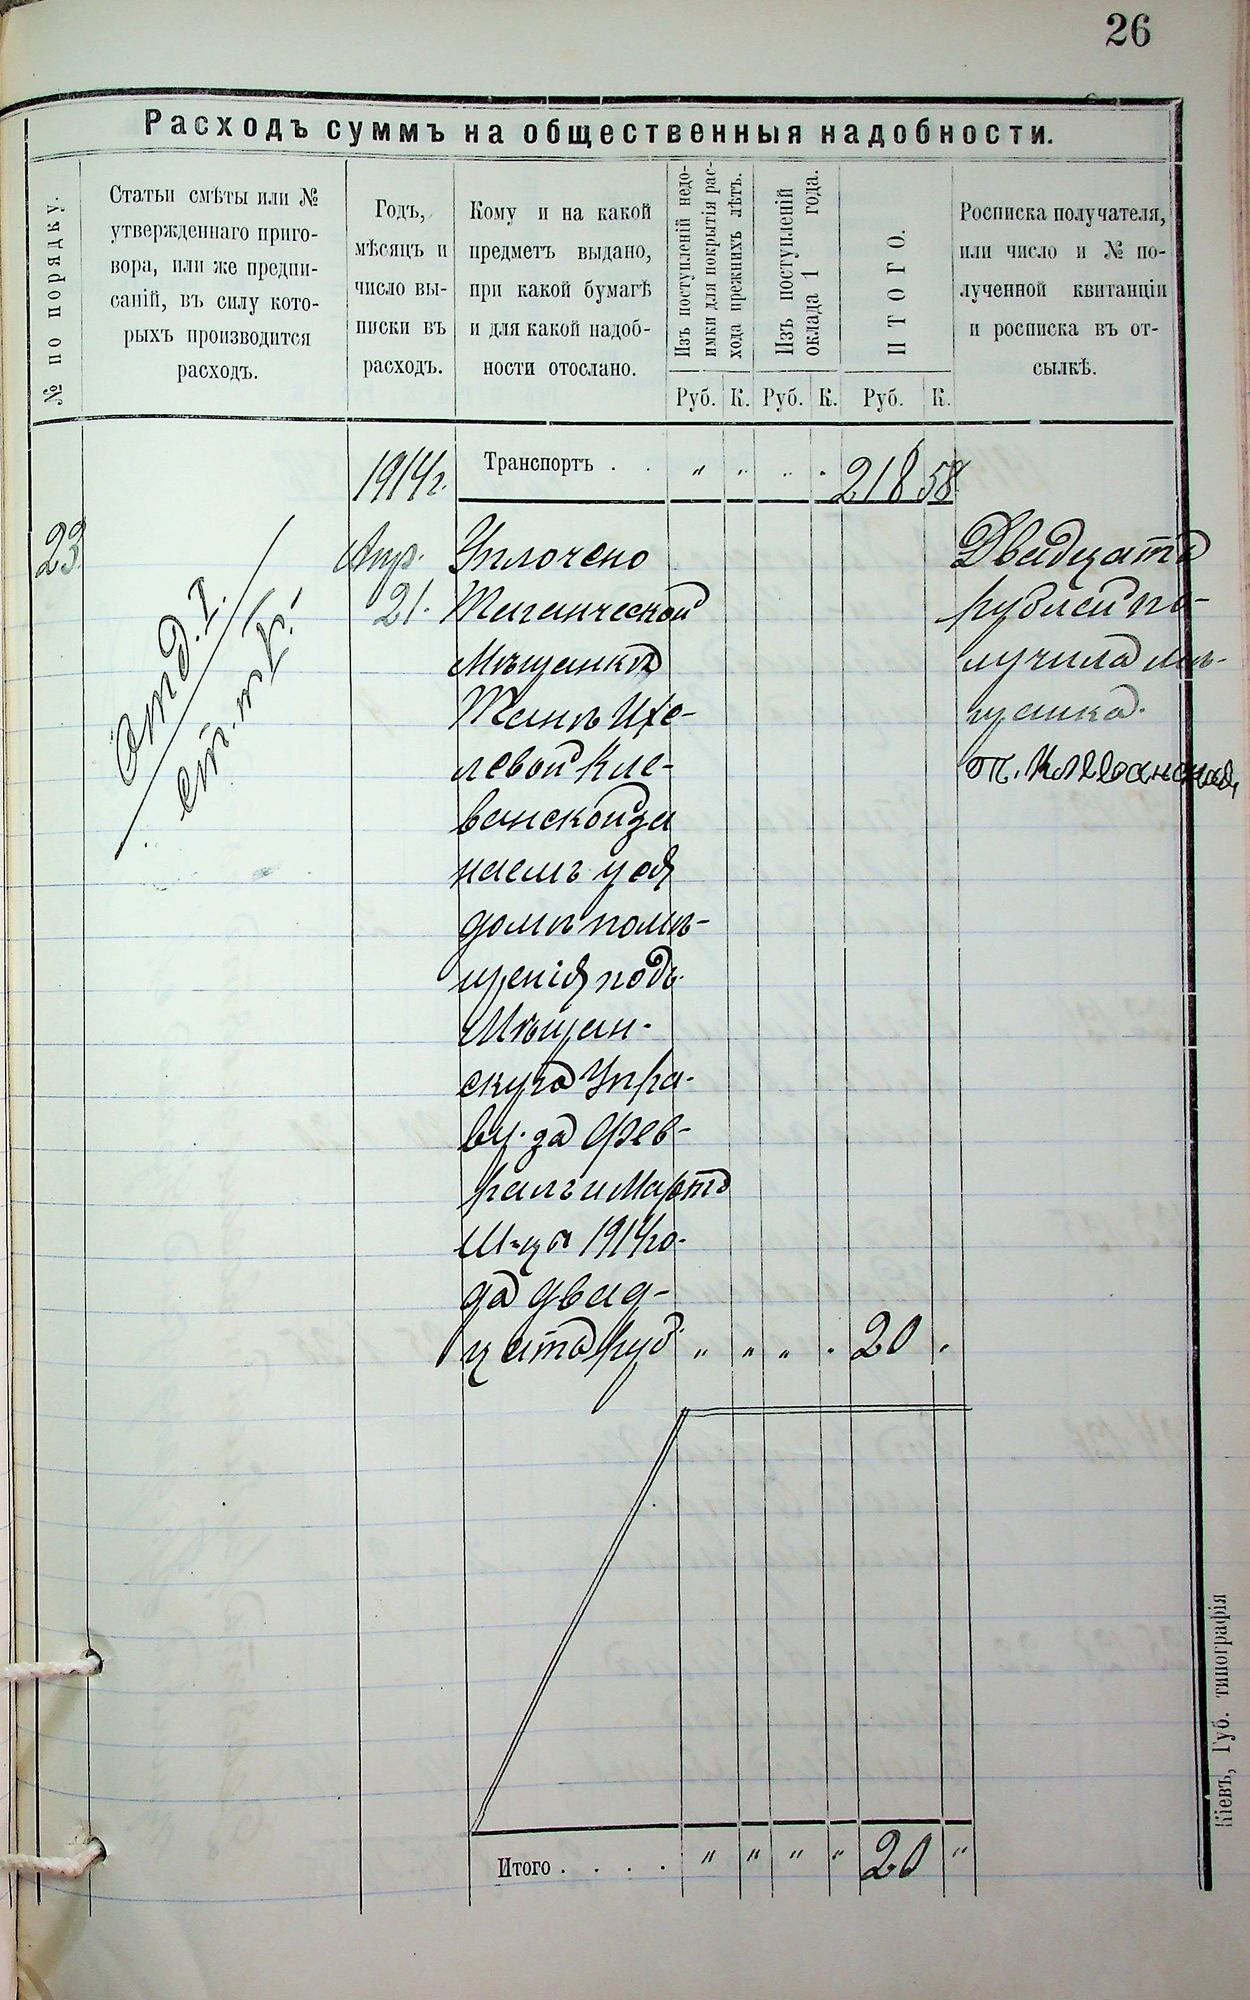 26
Расходъ суммъ на общественныя надобности.
№ по порядку.
Статьи смѣты или №
утвержденнаго приго-
вора, или же предпи-
саній, въ силу кото-
рыхъ производится
расходъ.
Годъ,
мѣсяцъ и
число вы-
писки въ
расходъ.
Кому и на какой
предметъ выдано,
при какой бумагѣ
и для какой надоб-
ности отослано.
Изъ поступленій недо-
имки для покрытія рас-
хода прежнихъ лѣтъ.
Изъ поступленій
оклада 1 года.
ИТОГО.
Росписка получателя,
или число и № по-
лученной квитанціи
и росписка въ от-
сылкѣ.
Руб. К. Руб. К. Руб. К.
1914г. Транспортъ . . " " . . 218 58
23
Отд. I.
ст.
Апр.
21.
Уплочено
Таганческой
Мѣщанкѣ
Танѣ Ихе-
левой Кле-
ванской за
наемъ у ея
домѣ помѣ-
щенія подъ
Мѣщан-
скую Упра-
ву за Фев-
раль и Мартъ
М-цы 1914 го-
да двад-
цать руб " " " . 20 .
Двадцать
рублей по-
лучила мѣ-
щанка.
Т. Клеванская
Итого . . . . " " " " 20 "
Кіевъ, Губ. типографія